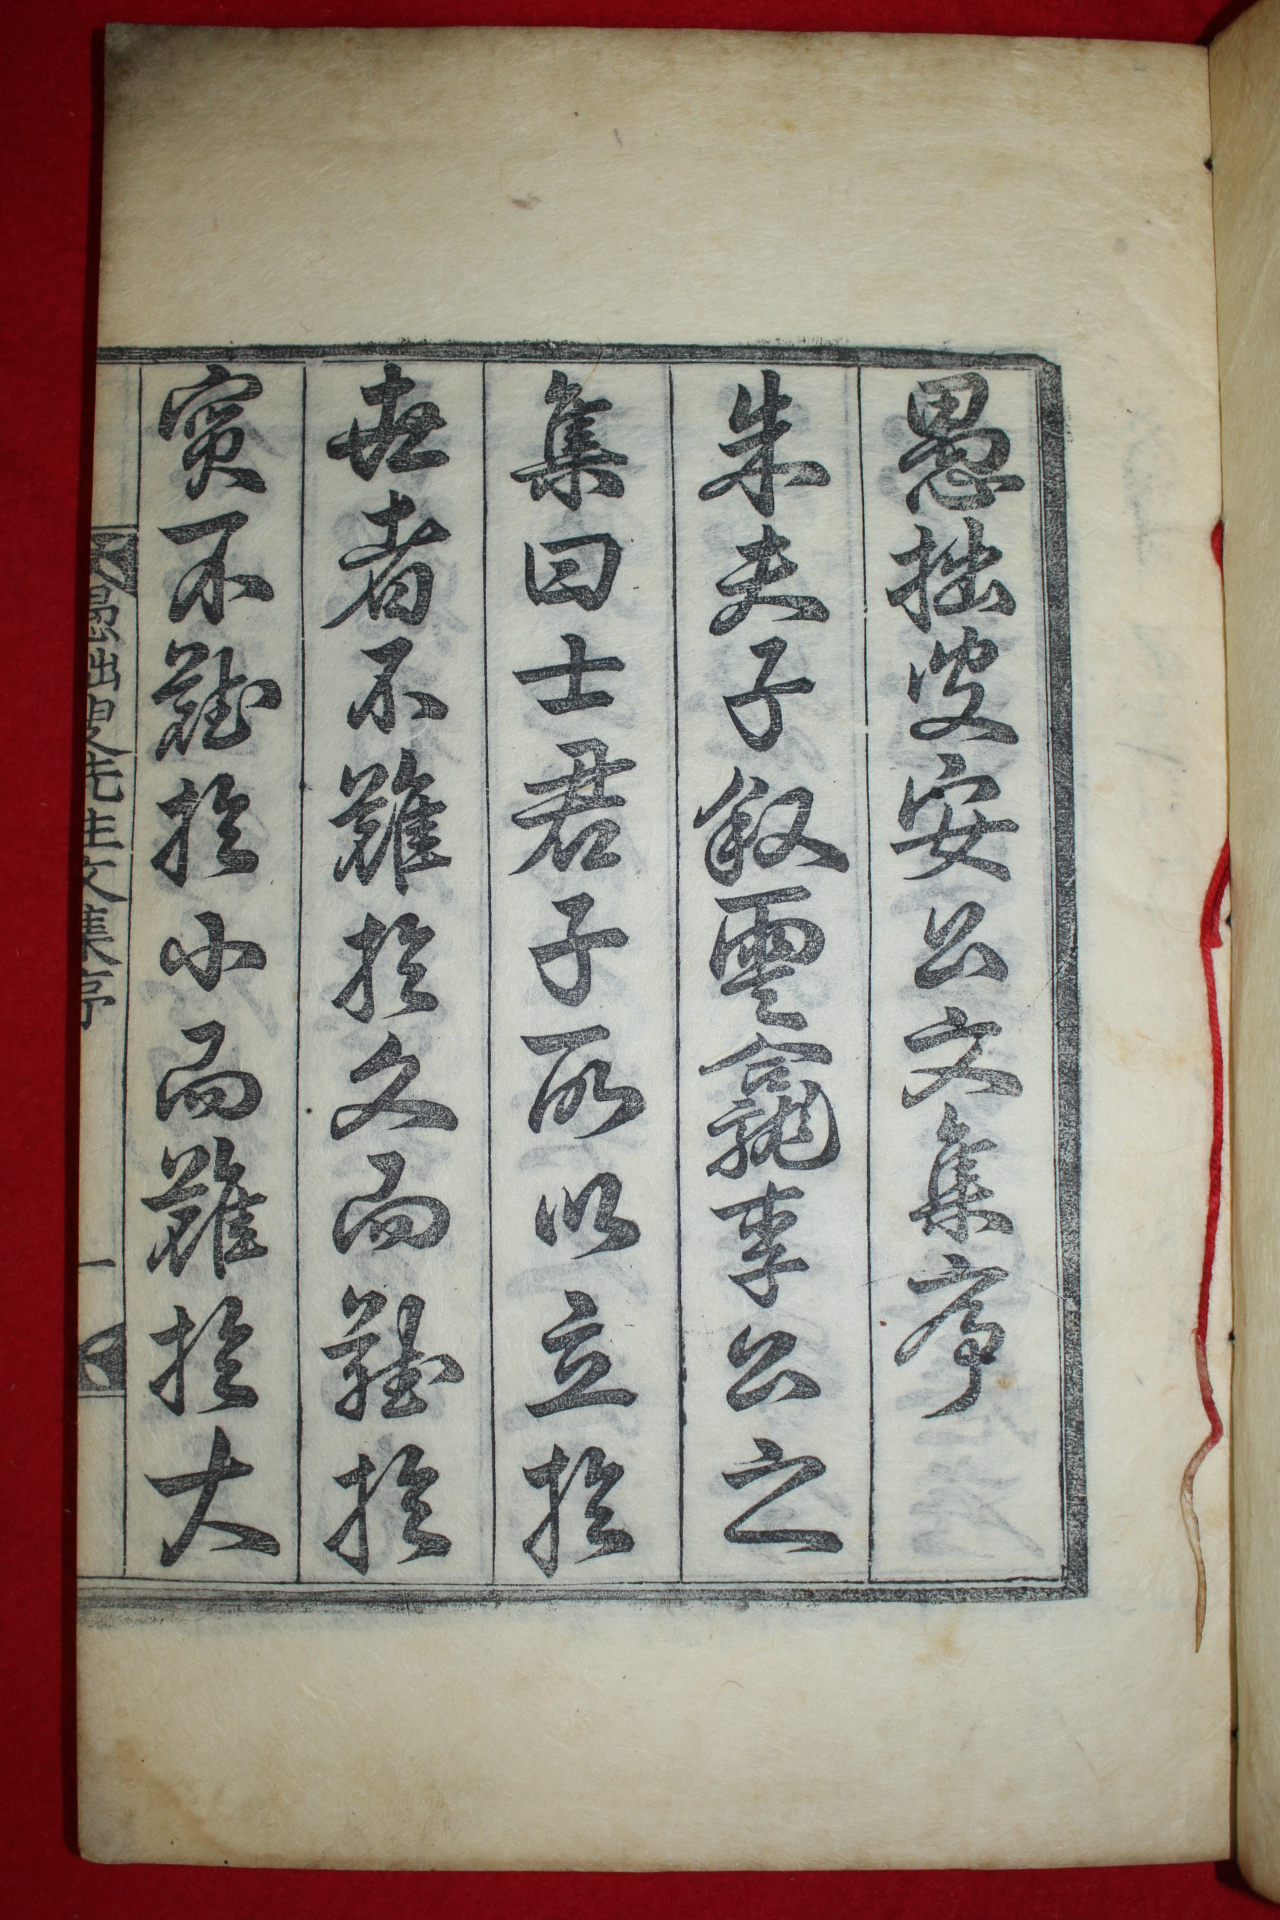 愚拙叟安公文集序
朱夫子叙雲龕李公之
集曰士君子所以立於
世者不難於久而難於
實不難於小而難於大
愚拙叟先生文集序
一